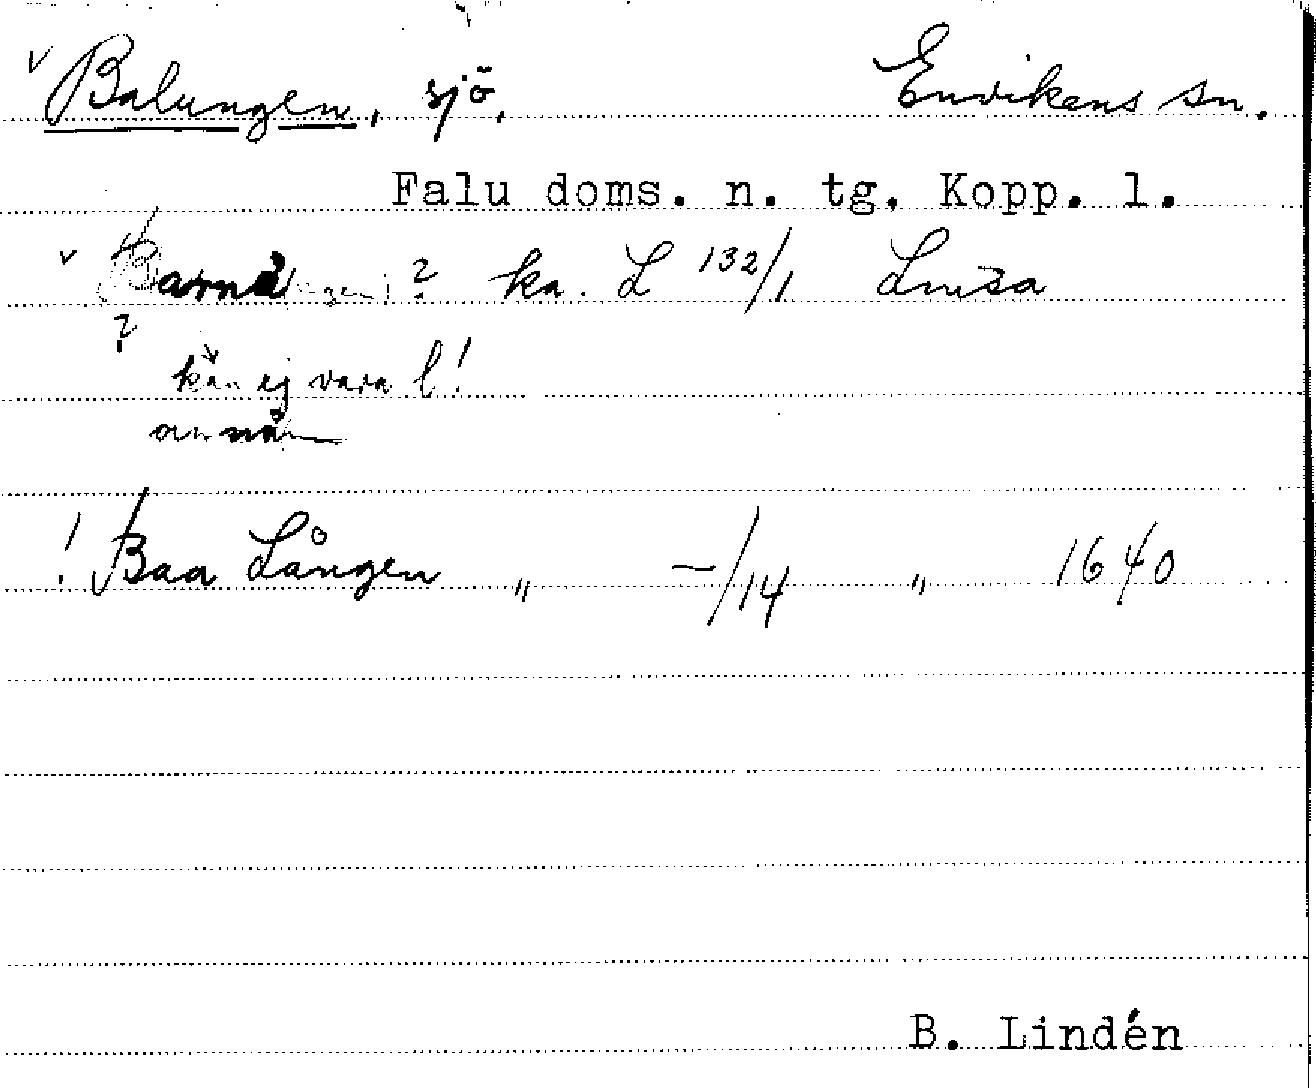 v Balungen, sjö, Envikens sn.
Falu doms. n. tg. Kopp. l.
v Barnå ngen ? ka. L 132/1 Lmsa
?
kan ej vara l!
! Baa Lången " —/14 " 1640
B. Lindén